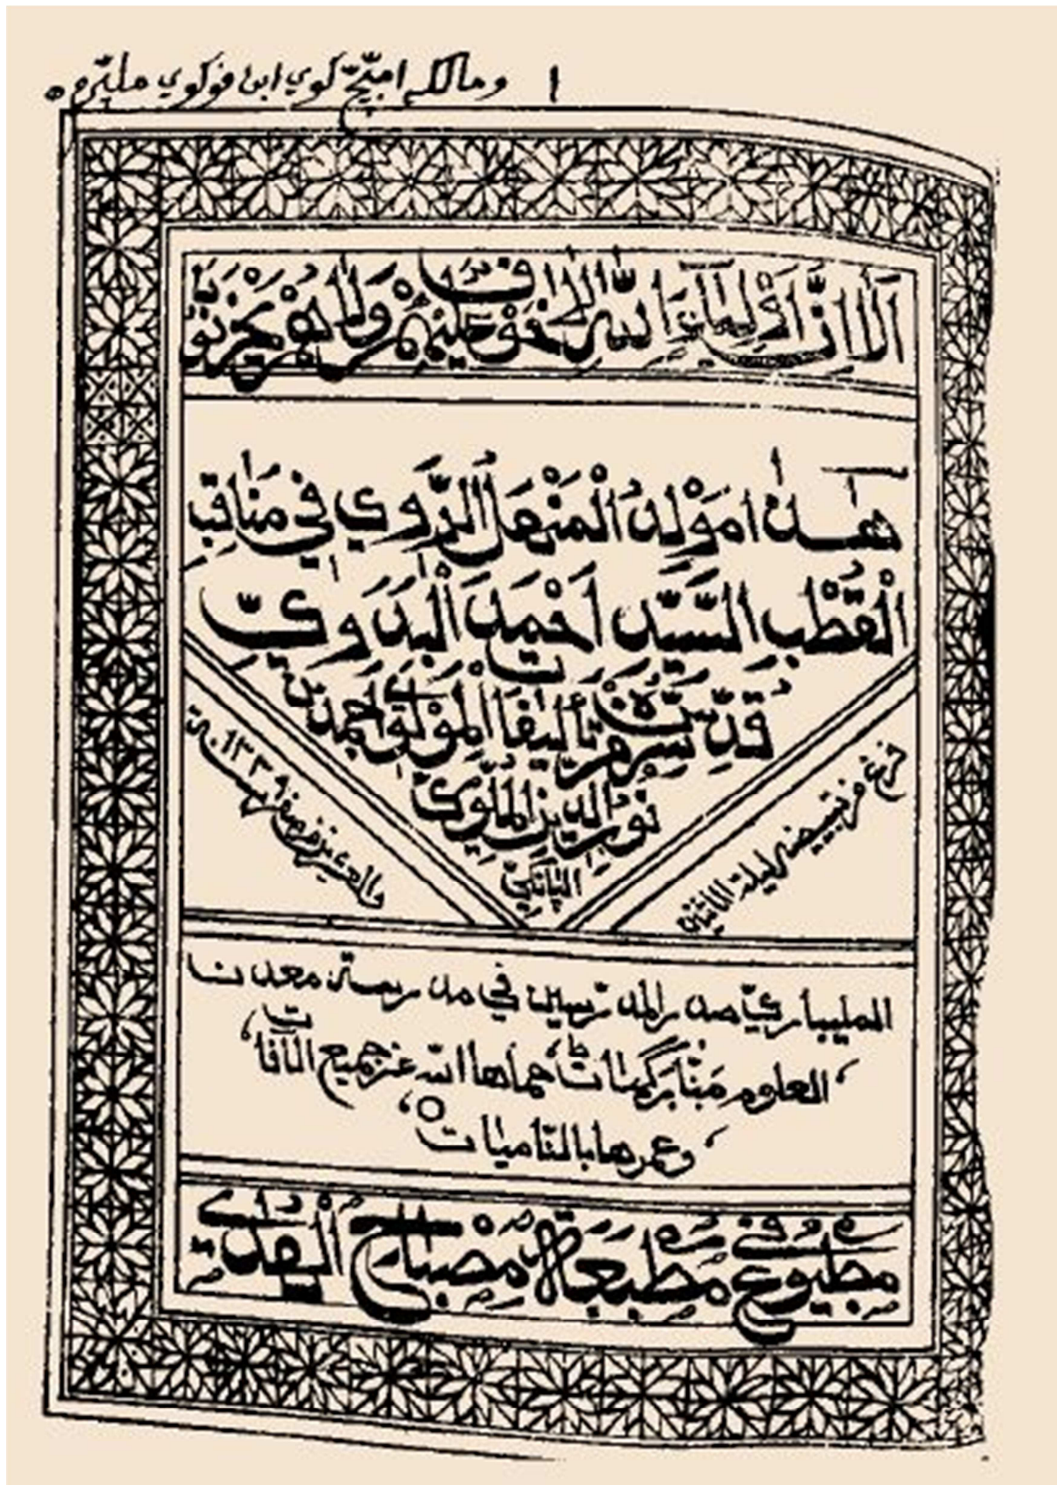 ١ ومالكه امبيّچّ كوي ابن فوكوي مليّرم
أَلَا إِنَّ أَوْلِيَاءَ اللّٰهِ لَا خَوْفٌ عَلَيْهِمْ وَلَا هُمْ يَحْزَنُونَ
هٰذا مَوْلِدُ الْمَنْهَلِ الرَّوِي فِي مَنَاقِبِ
الْقُطْبِ السَّيِّدِ أَحْمَدَ الْبَدَوِيِّ
قُدِّسَ سِرُّهُ تأليف الْمَوْلَوِي احمد
نُورُ الدِّينِ الْمَلَّوِيّ
البانگيّ
ليلة الاثنين
والعشرين من صفر سنة ١٣٣٩
المليباريّ صدر المدرّسين في مدرسة معدن
العلوم حماها الله عن جميع الآفات
وعمرها بالتاميات
مَطْبُوعٌ فِي مَطْبَعَةِ مِصْبَاحِ الْهُدٰى